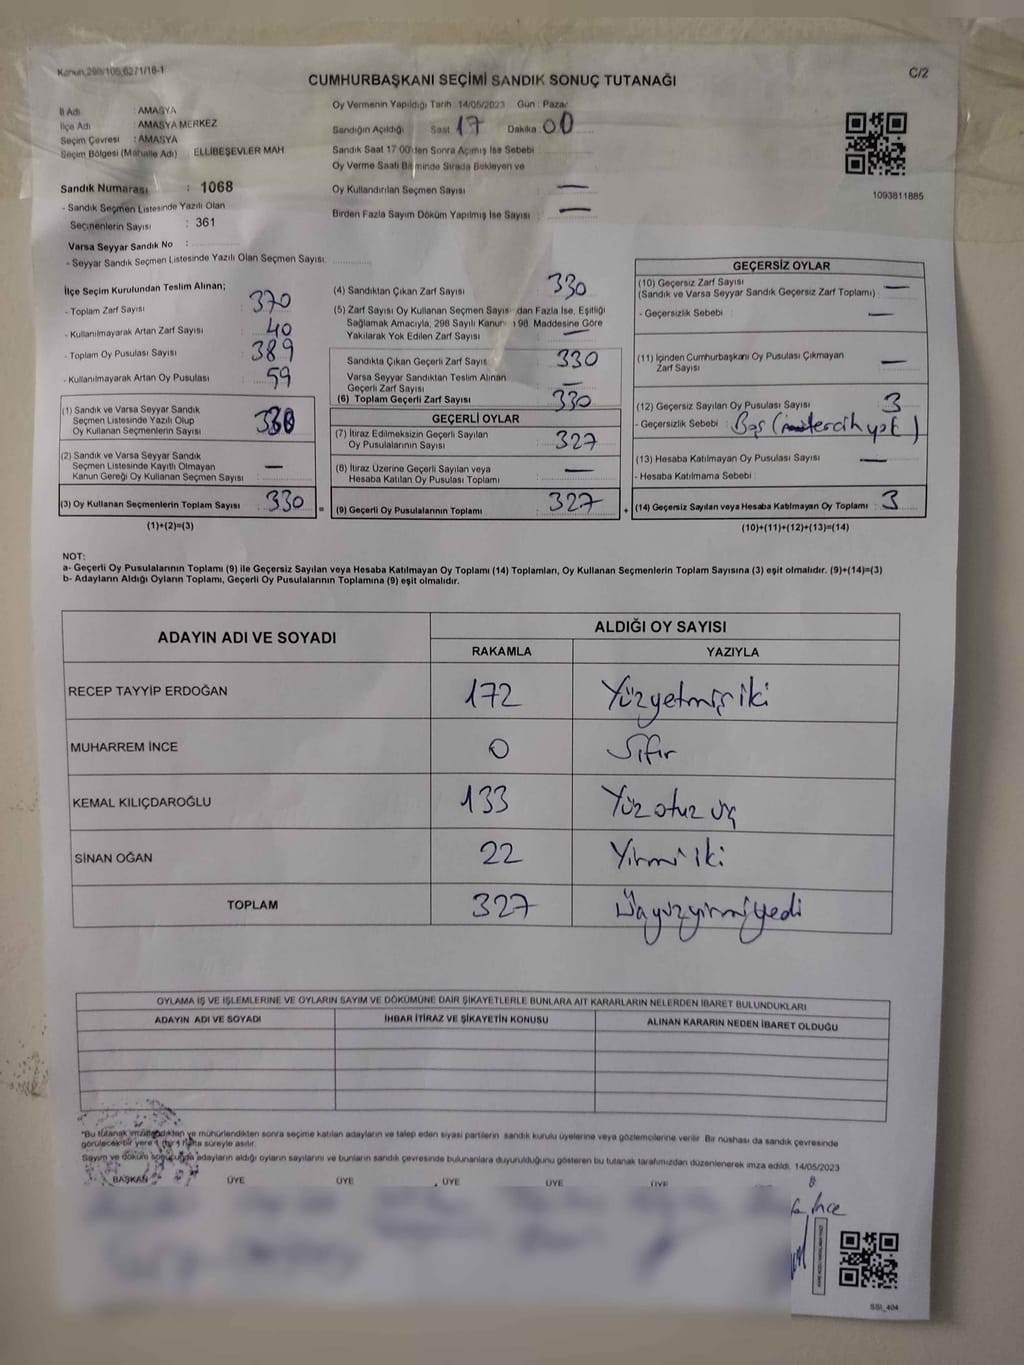 Kanun 298/105,6271/18-1
C/2
CUMHURBAŞKANI SEÇİMİ SANDIK SONUÇ TUTANAĞI
İl Adı : AMASYA
İlçe Adı : AMASYA MERKEZ
Seçim Çevresi : AMASYA
Seçim Bölgesi (Mahalle Adı) : ELLİBEŞEVLER MAH
Sandık Numarası : 1068
- Sandık Seçmen Listesinde Yazılı Olan
Seçmenlerin Sayısı : 361
Varsa Seyyar Sandık No :
- Seyyar Sandık Seçmen Listesinde Yazılı Olan Seçmen Sayısı:
Oy Vermenin Yapıldığı Tarih 14/05/2023 Gün : Pazar
Sandığın Açıldığı Saat 17 Dakika : 00
Sandık Saat 17:00'den Sonra Açılmış İse Sebebi
Oy Verme Saati Bitiminde Sırada Bekleyen ve
Oy Kullandırılan Seçmen Sayısı : —
Birden Fazla Sayım Döküm Yapılmış İse Sayısı : —
1093811885
İlçe Seçim Kurulundan Teslim Alınan;
- Toplam Zarf Sayısı : 370
- Kullanılmayarak Artan Zarf Sayısı : 40
- Toplam Oy Pusulası Sayısı : 389
- Kullanılmayarak Artan Oy Pusulası : 59
(1) Sandık ve Varsa Seyyar Sandık
Seçmen Listesinde Yazılı Olup
Oy Kullanan Seçmenlerin Sayısı : 330
(2) Sandık ve Varsa Seyyar Sandık
Seçmen Listesinde Kayıtlı Olmayan
Kanun Gereği Oy Kullanan Seçmen Sayısı : —
(3) Oy Kullanan Seçmenlerin Toplam Sayısı : 330
(1)+(2)=(3)
(4) Sandıktan Çıkan Zarf Sayısı : 330
(5) Zarf Sayısı Oy Kullanan Seçmen Sayısından Fazla İse, Eşitliği
Sağlamak Amacıyla, 298 Sayılı Kanun 98. Maddesine Göre
Yakılarak Yok Edilen Zarf Sayısı : —
Sandıkta Çıkan Geçerli Zarf Sayısı : 330
Varsa Seyyar Sandıktan Teslim Alınan
Geçerli Zarf Sayısı : —
(6) Toplam Geçerli Zarf Sayısı : 330
GEÇERLİ OYLAR
(7) İtiraz Edilmeksizin Geçerli Sayılan
Oy Pusulalarının Sayısı : 327
(8) İtiraz Üzerine Geçerli Sayılan veya
Hesaba Katılan Oy Pusulası Toplamı : —
= (9) Geçerli Oy Pusulalarının Toplamı : 327
GEÇERSİZ OYLAR
(10) Geçersiz Zarf Sayısı
(Sandık ve Varsa Seyyar Sandık Geçersiz Zarf Toplamı) : —
- Geçersizlik Sebebi : —
(11) İçinden Cumhurbaşkanı Oy Pusulası Çıkmayan
Zarf Sayısı : —
(12) Geçersiz Sayılan Oy Pusulası Sayısı : 3
- Geçersizlik Sebebi : Boş ( tercih yok )
(13) Hesaba Katılmayan Oy Pusulası Sayısı : —
- Hesaba Katılmama Sebebi :
+ (14) Geçersiz Sayılan veya Hesaba Katılmayan Oy Toplamı : 3
(10)+(11)+(12)+(13)=(14)
NOT:
a- Geçerli Oy Pusulalarının Toplamı (9) ile Geçersiz Sayılan veya Hesaba Katılmayan Oy Toplamı (14) Toplamları, Oy Kullanan Seçmenlerin Toplam Sayısına (3) eşit olmalıdır. (9)+(14)=(3)
b- Adayların Aldığı Oyların Toplamı, Geçerli Oy Pusulalarının Toplamına (9) eşit olmalıdır.
ADAYIN ADI VE SOYADI ALDIĞI OY SAYISI
RAKAMLA YAZIYLA
RECEP TAYYİP ERDOĞAN 172 Yüzyetmiş iki
MUHARREM İNCE 0 Sıfır
KEMAL KILIÇDAROĞLU 133 Yüz otuz üç
SİNAN OĞAN 22 Yirmi iki
TOPLAM 327 Üçyüzyirmiyedi
OYLAMA İŞ VE İŞLEMLERİNE VE OYLARIN SAYIM VE DÖKÜMÜNE DAİR ŞİKAYETLERLE BUNLARA AİT KARARLARIN NELERDEN İBARET BULUNDUKLARI
ADAYIN ADI VE SOYADI İHBAR İTİRAZ VE ŞİKAYETİN KONUSU ALINAN KARARIN NEDEN İBARET OLDUĞU
"Bu tutanak imzalandıktan ve mühürlendikten sonra seçime katılan adayların ve talep eden siyasi partilerin sandık kurulu üyelerine veya gözlemcilerine verilir. Bir nüshası da sandık çevresinde
görülecek bir yere 1 (bir) hafta süreyle asılır.
Sayım ve döküm sonucunda adayların aldığı oyların sayılarını ve bunların sandık çevresinde bulunanlara duyurulduğunu gösteren bu tutanak tarafımızdan düzenlenerek imza edildi. 14/05/2023
BAŞKAN ÜYE ÜYE ÜYE ÜYE ÜYE
İnce
SSI_404